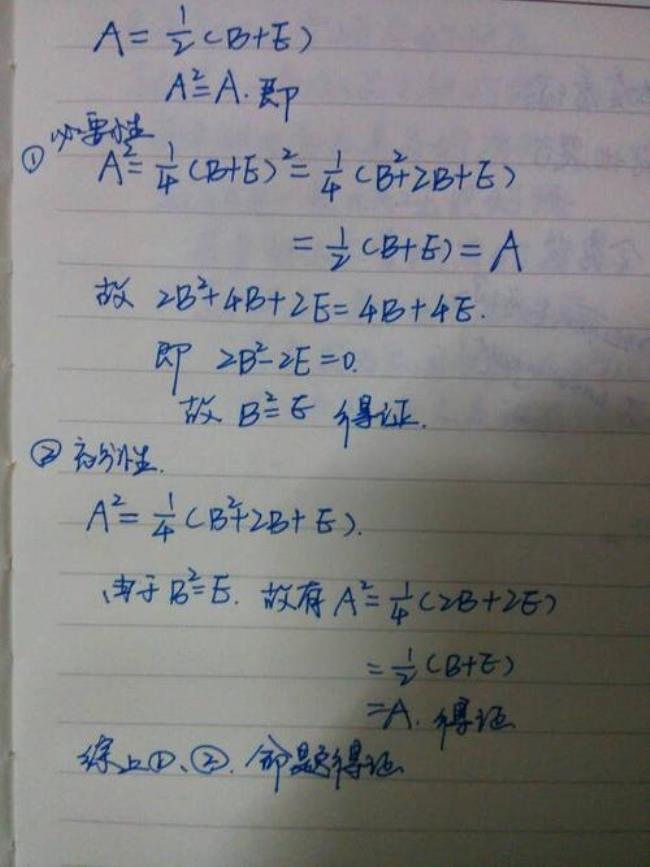 A = 1/2 (B+E)
A² = A. 即
① 必要性
A² = 1/4 (B+E)² = 1/4 (B²+2B+E)
= 1/2 (B+E) = A
故 2B²+4B+2E = 4B+4E.
即 2B²-2E = 0.
故 B² = E 得证.
② 充分性.
A² = 1/4 (B²+2B+E).
由于 B² = E. 故有 A² = 1/4 (2B+2E)
= 1/2 (B+E)
= A. 得证
综上①、②. 命题得证